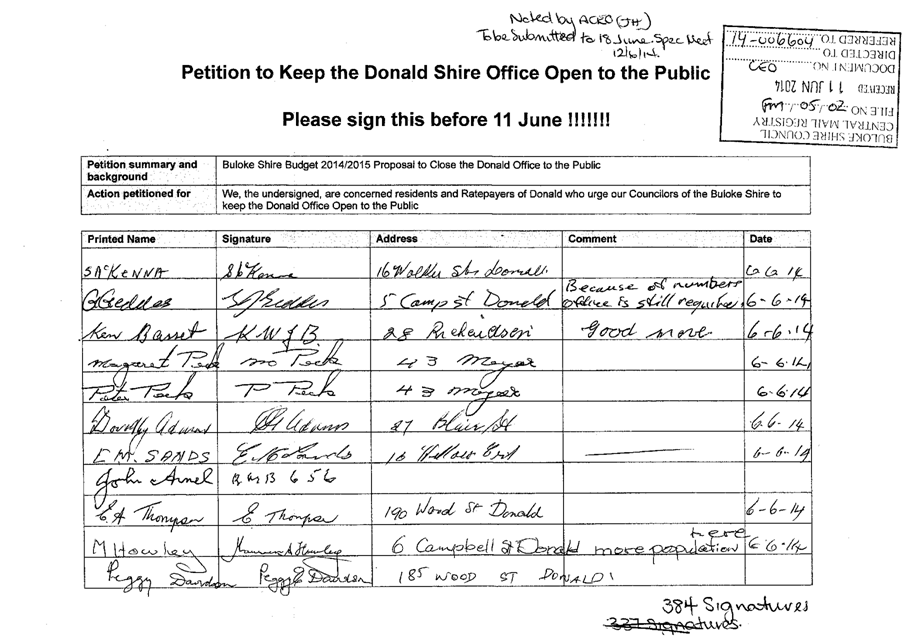 Noted by ACEO (JH)
To be Submitted to 18 June Spec Meet
12/6/14.
BULOKE SHIRE COUNCIL
CENTRAL MAIL REGISTRY
FILE NO. FM/05/02
RECEIVED 11 JUN 2014
DOCUMENT NO.
DIRECTED TO. CEO
REFERRED TO. 14-006604
Petition to Keep the Donald Shire Office Open to the Public
Please sign this before 11 June !!!!!!!
Petition summary and background Buloke Shire Budget 2014/2015 Proposal to Close the Donald Office to the Public
Action petitioned for We, the undersigned, are concerned residents and Ratepayers of Donald who urge our Councilors of the Buloke Shire to
keep the Donald Office Open to the Public
Printed Name Signature Address Comment Date
S McKENNA S McKenna 16 Walker St Donald 6 6 14
G Geddes G Geddes 5 Camp st Donald Because of numbers office is still required. 6-6-14
Ken Basset K W J B. 28 Good move. 6-6-14
Margaret Peck M Peck 43 6-6-14
Peter Peck P Peck 43 6-6-14
Dorothy Adams Adams 27 Blair St 6 6-14
E M. SANDS 16 6-6-14
John 656
E A Thompson E Thompson 190 Wood St Donald 6-6-14
M Howley Howley 6 Campbell St Donald more population here 6 6-14
Peggy Davidson Peggy E Davidson 185 WOOD ST DONALD
384 Signatures
337 Signatures.